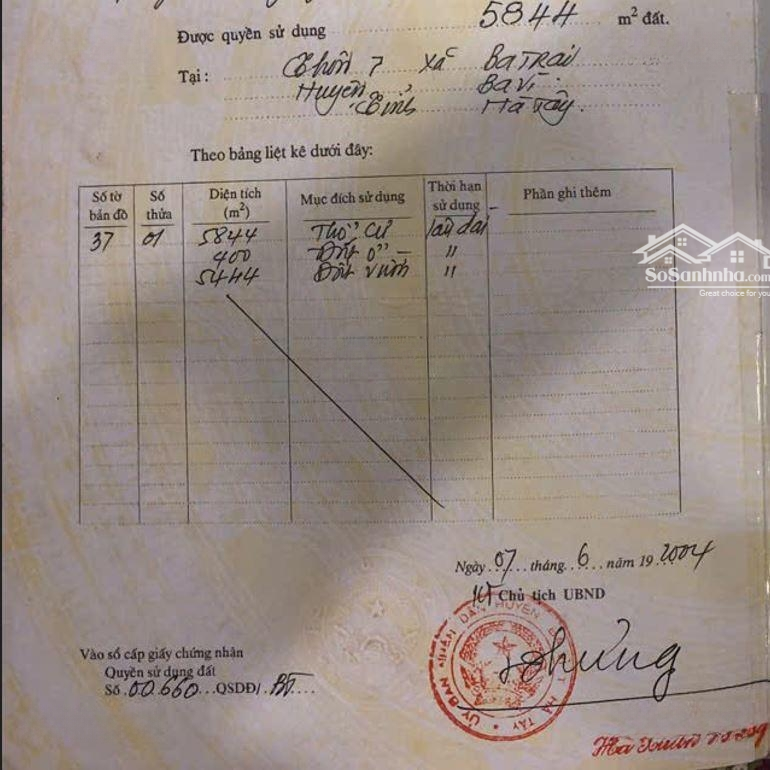 Được quyền sử dụng 5844 m² đất.
Tại: Thôn 7 xã Ba Trại
Huyện Ba Vì
Tỉnh Hà Tây.
Theo bảng liệt kê dưới đây:
Số tờ bản đồ Số thửa Diện tích (m²) Mục đích sử dụng Thời hạn sử dụng Phần ghi thêm
37 01 5844 Thổ cư lâu dài
400 Đất ở "
5444 Đất vườn "
SoSanhnha.com
Great choice for you
Ngày 07 tháng 6 năm 19 2004
KT Chủ tịch UBND
Vào sổ cấp giấy chứng nhận
Quyền sử dụng đất
Số 00660 QSDĐ/ BT
ỦY BAN NHÂN DÂN HUYỆN HÀ TÂY
Hà Xuân